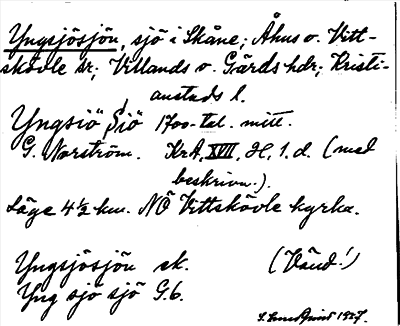 Yngsjösjön, sjö i Skåne; Åhus o. Vitt-
skövle sr; Villands o. Gärds hdr; Kristi-
anstads l.
Yngsiö Siö 1700-tal. mitt.
G. Norström. KrA, XVII, H, 1. d. (med
beskrivn.).
Läge 4½ km. NÖ Vittskövle kyrka.
Yngsjösjön ek. (Vänd!)
Yng sjö sjö G.b.
1927.